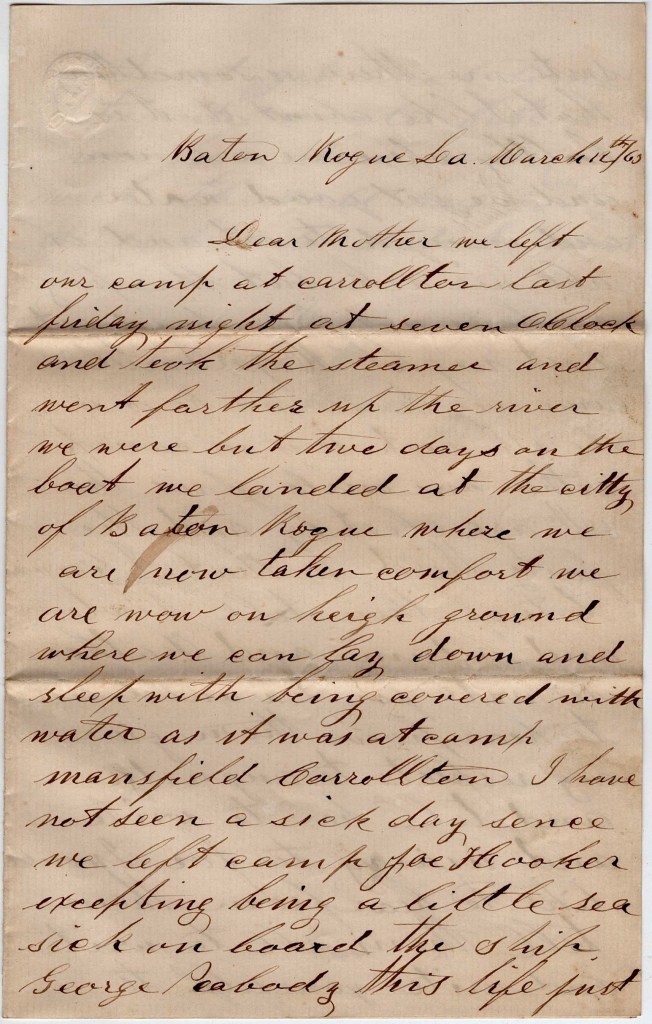 Baton Rogue La. March 12th/63
Dear Mother we left
our camp at carrollton last
friday night at seven OClock
and took the steamer and
went farther up the river
we were but two days on the
boat we landed at the citty
of Baton Rogue where we
are now taken comfort we
are wow on heigh ground
where we can lay down and
sleep with being covered with
water as it was at camp
mansfield Carrollton I have
not seen a sick day sence
we left camp Joe Hooker
excepting being a little sea
sick on board the ship
George Peabody this life just